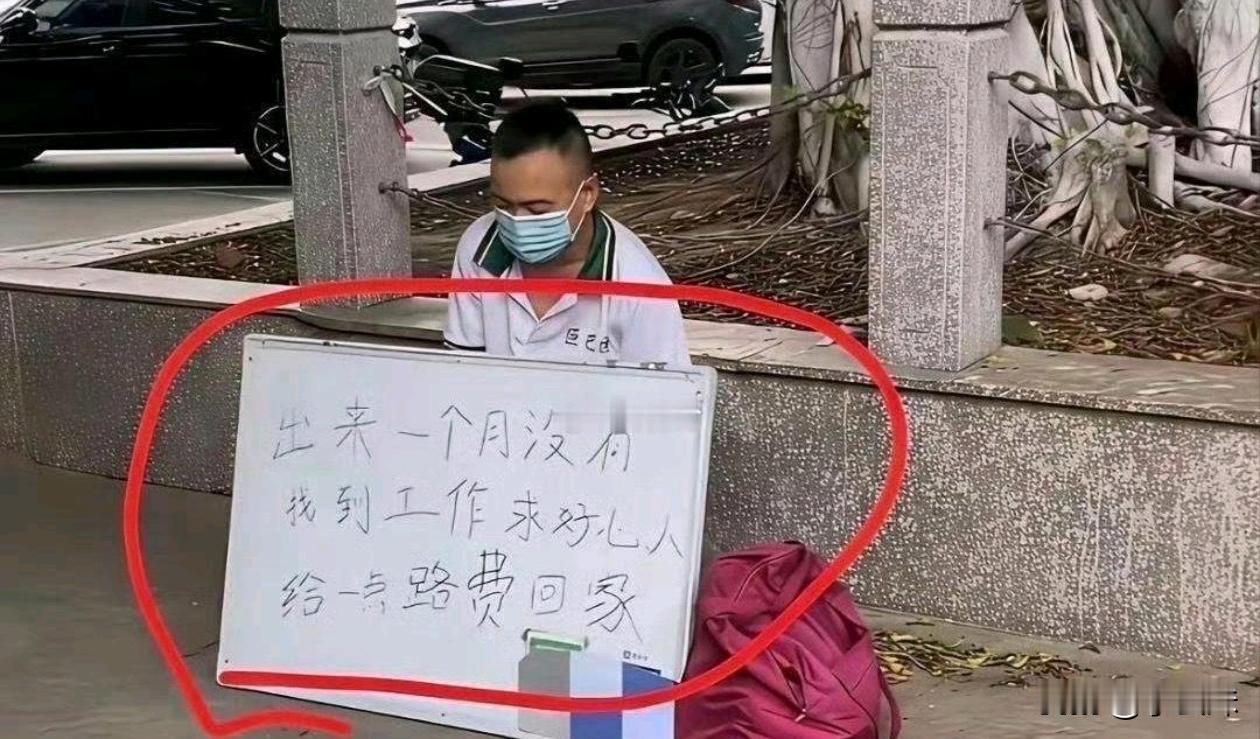 出来一个月没有
找到工作求好心人
给一点路费回家